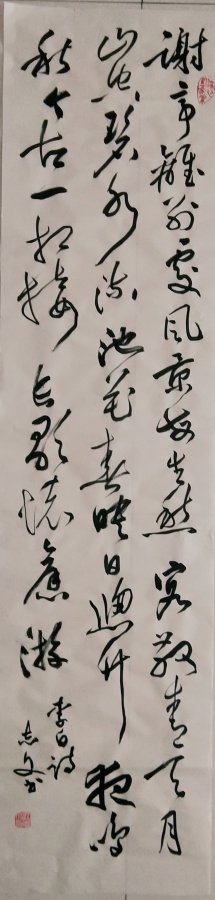 謝亭離别處风景每生愁客散青天月
山空碧水流池花春映日窗竹夜鳴
秋今古一相接长歌懷舊游
李白诗
志文书